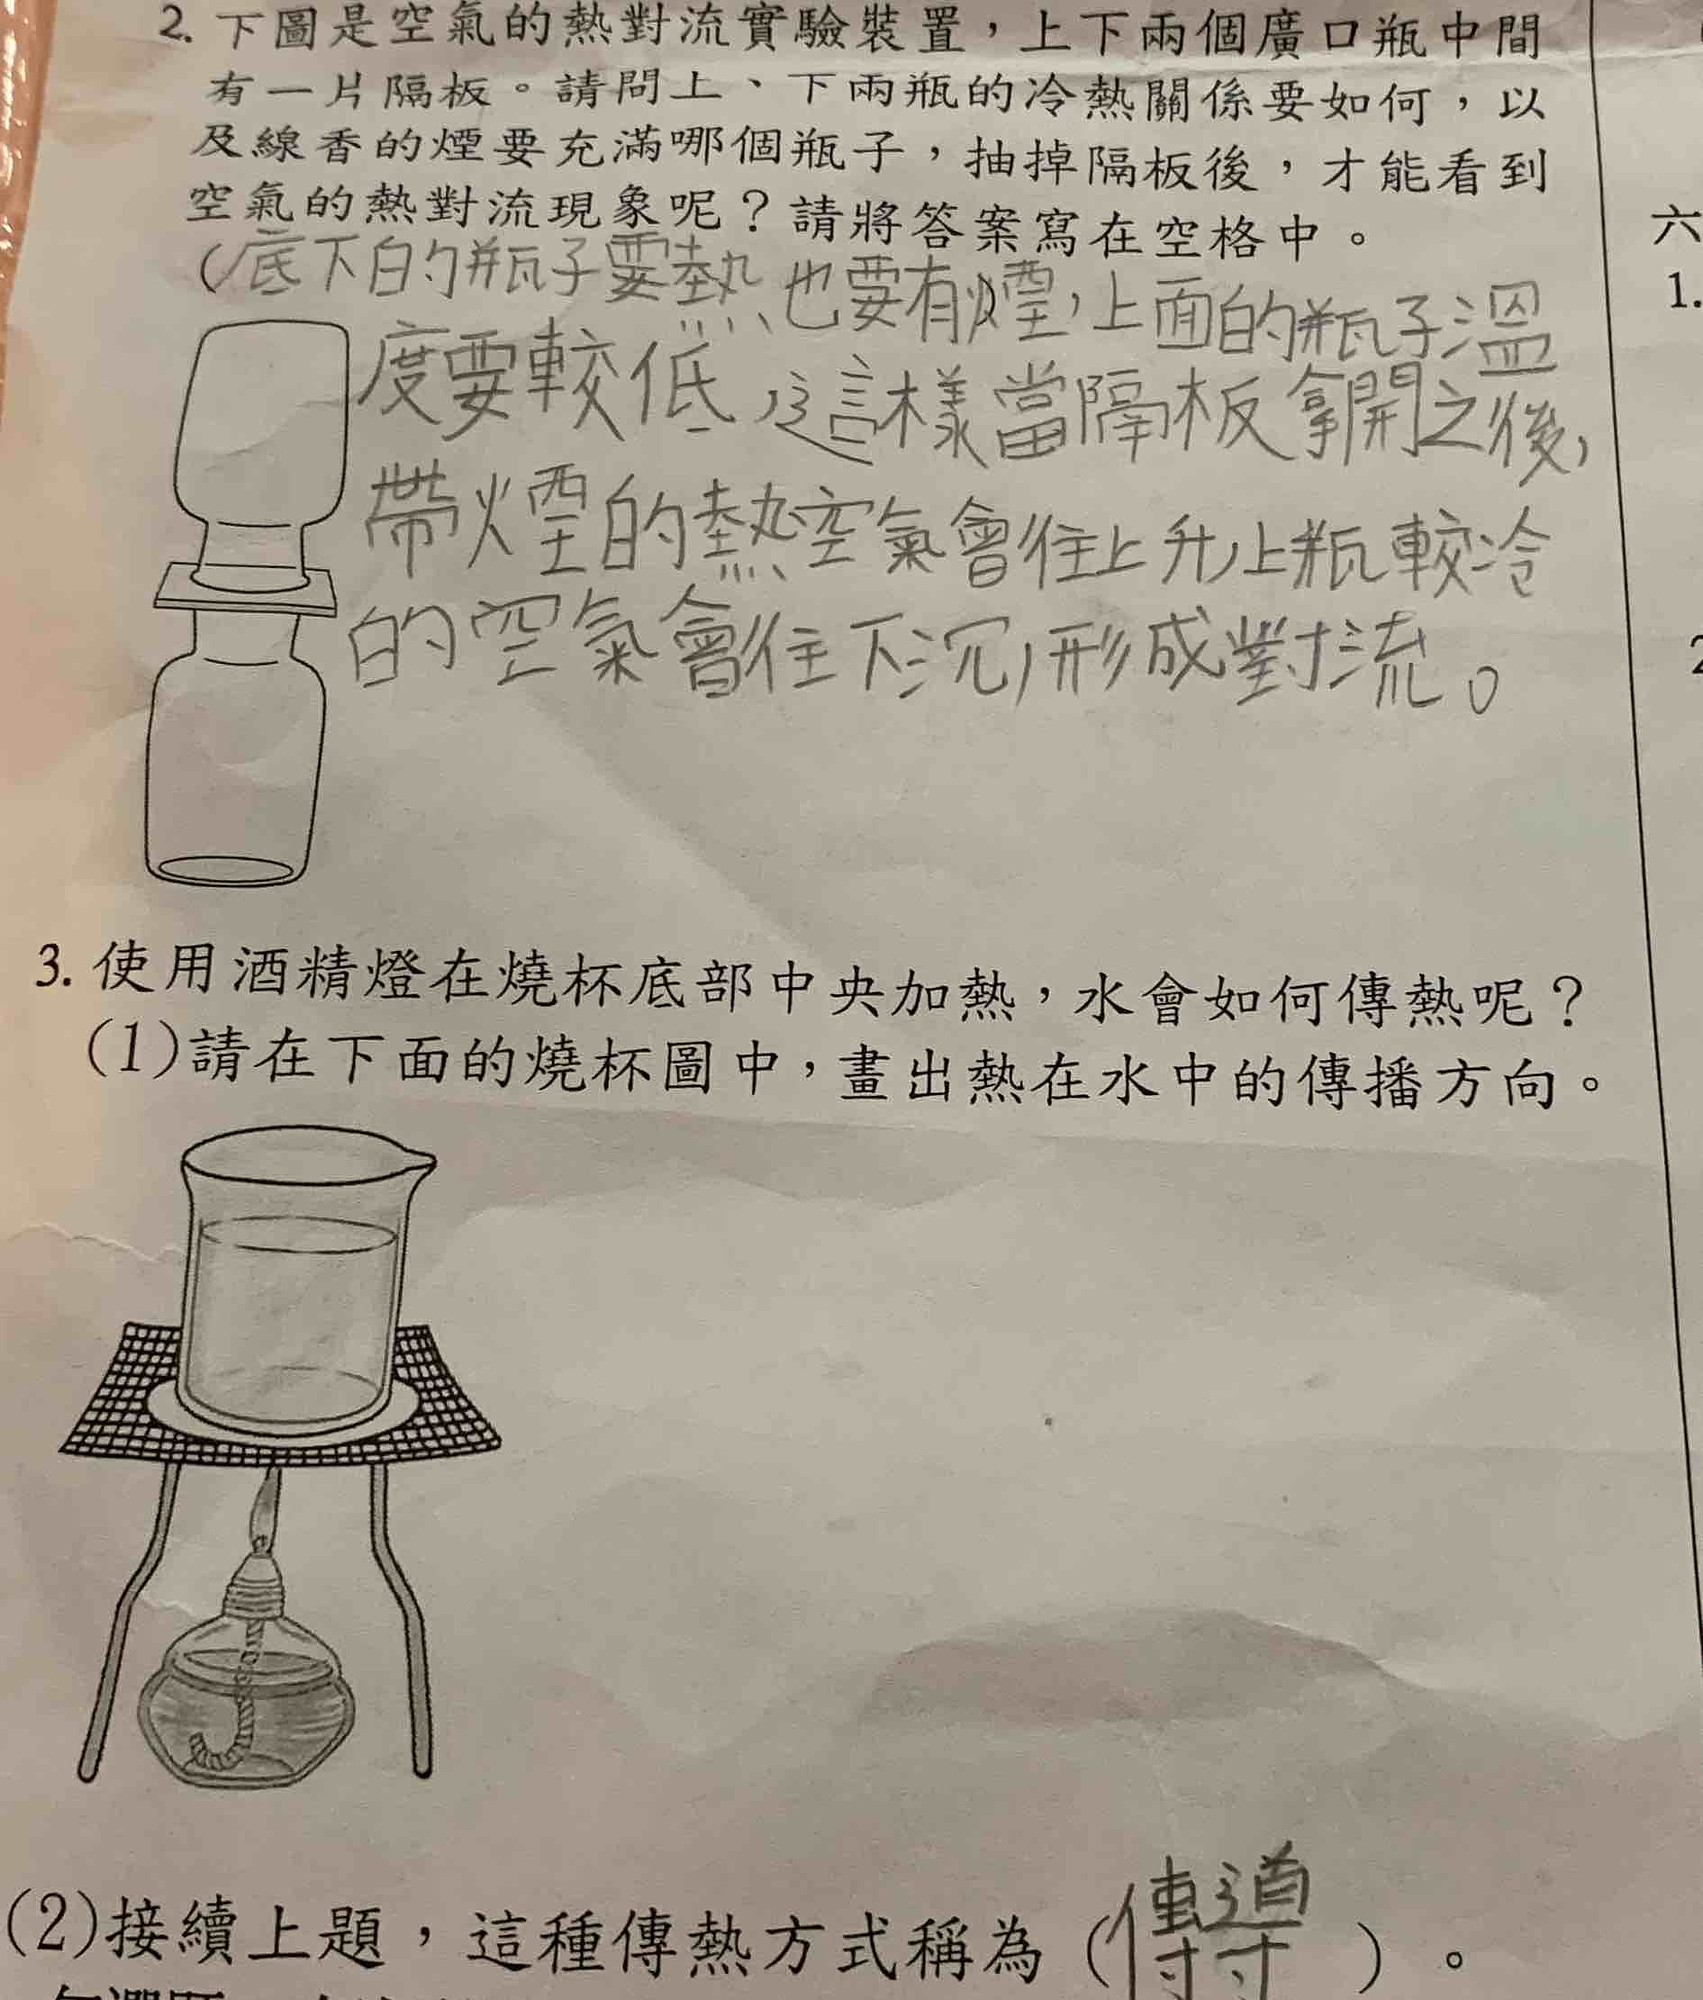 2. 下圖是空氣的熱對流實驗裝置，上下兩個廣口瓶中間
有一片隔板。請問上、下兩瓶的冷熱關係要如何，以
及線香的煙要充滿哪個瓶子，抽掉隔板後，才能看到
空氣的熱對流現象呢？請將答案寫在空格中。
(底下的瓶子要熱也要有煙，上面的瓶子溫
度要較低，這樣當隔板拿開之後，
帶煙的熱空氣會往上升，上瓶較冷
的空氣會往下沉，形成對流。
3. 使用酒精燈在燒杯底部中央加熱，水會如何傳熱呢？
(1)請在下面的燒杯圖中，畫出熱在水中的傳播方向。
(2)接續上題，這種傳熱方式稱為（傳導）。
六
1.
2